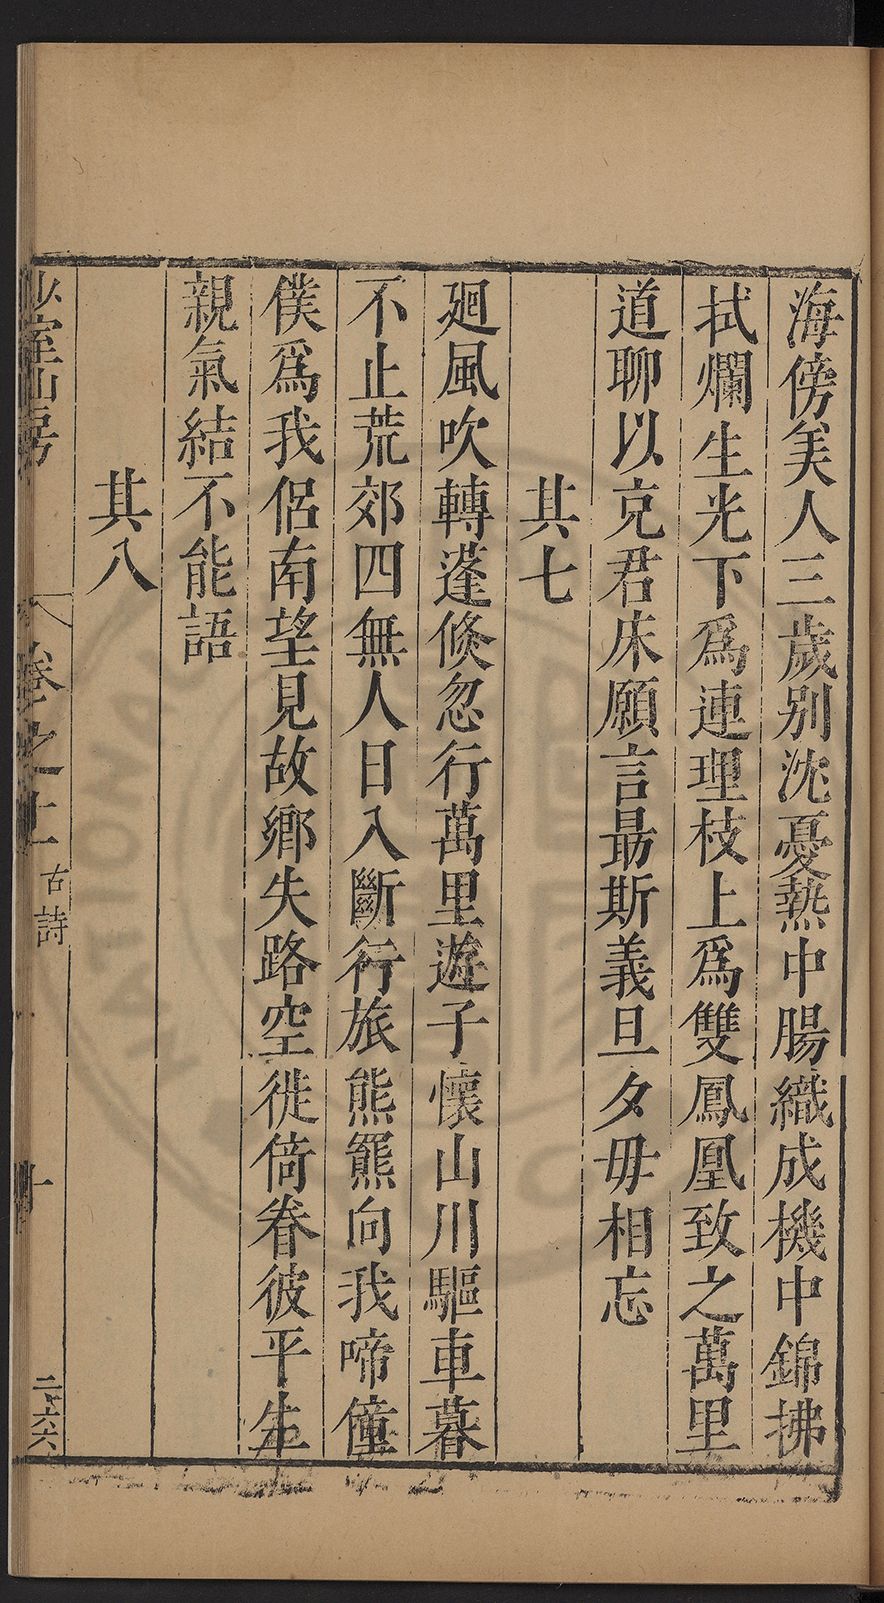 海傍美人三歲别沈憂熱中腸織成機中錦拂
拭爛生光下爲連理枝上爲雙鳳凰致之萬里
道聊以克君床願言最斯義旦夕毋相忘
其七
廻風吹轉蓬倐忽行萬里遊子懷山川驅車暮
不止荒郊四無人日入斷行旅熊羆向我啼僮
僕爲我侶南望見故鄉失路空徙倚眷彼平生
親氣結不能語
其八
少室山房
卷之上
古詩
十
二六六